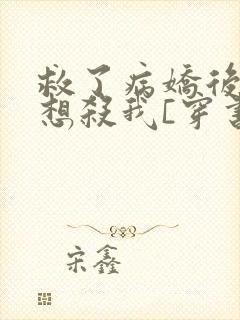 救了病嬌後
想殺我[穿書
宋鑫